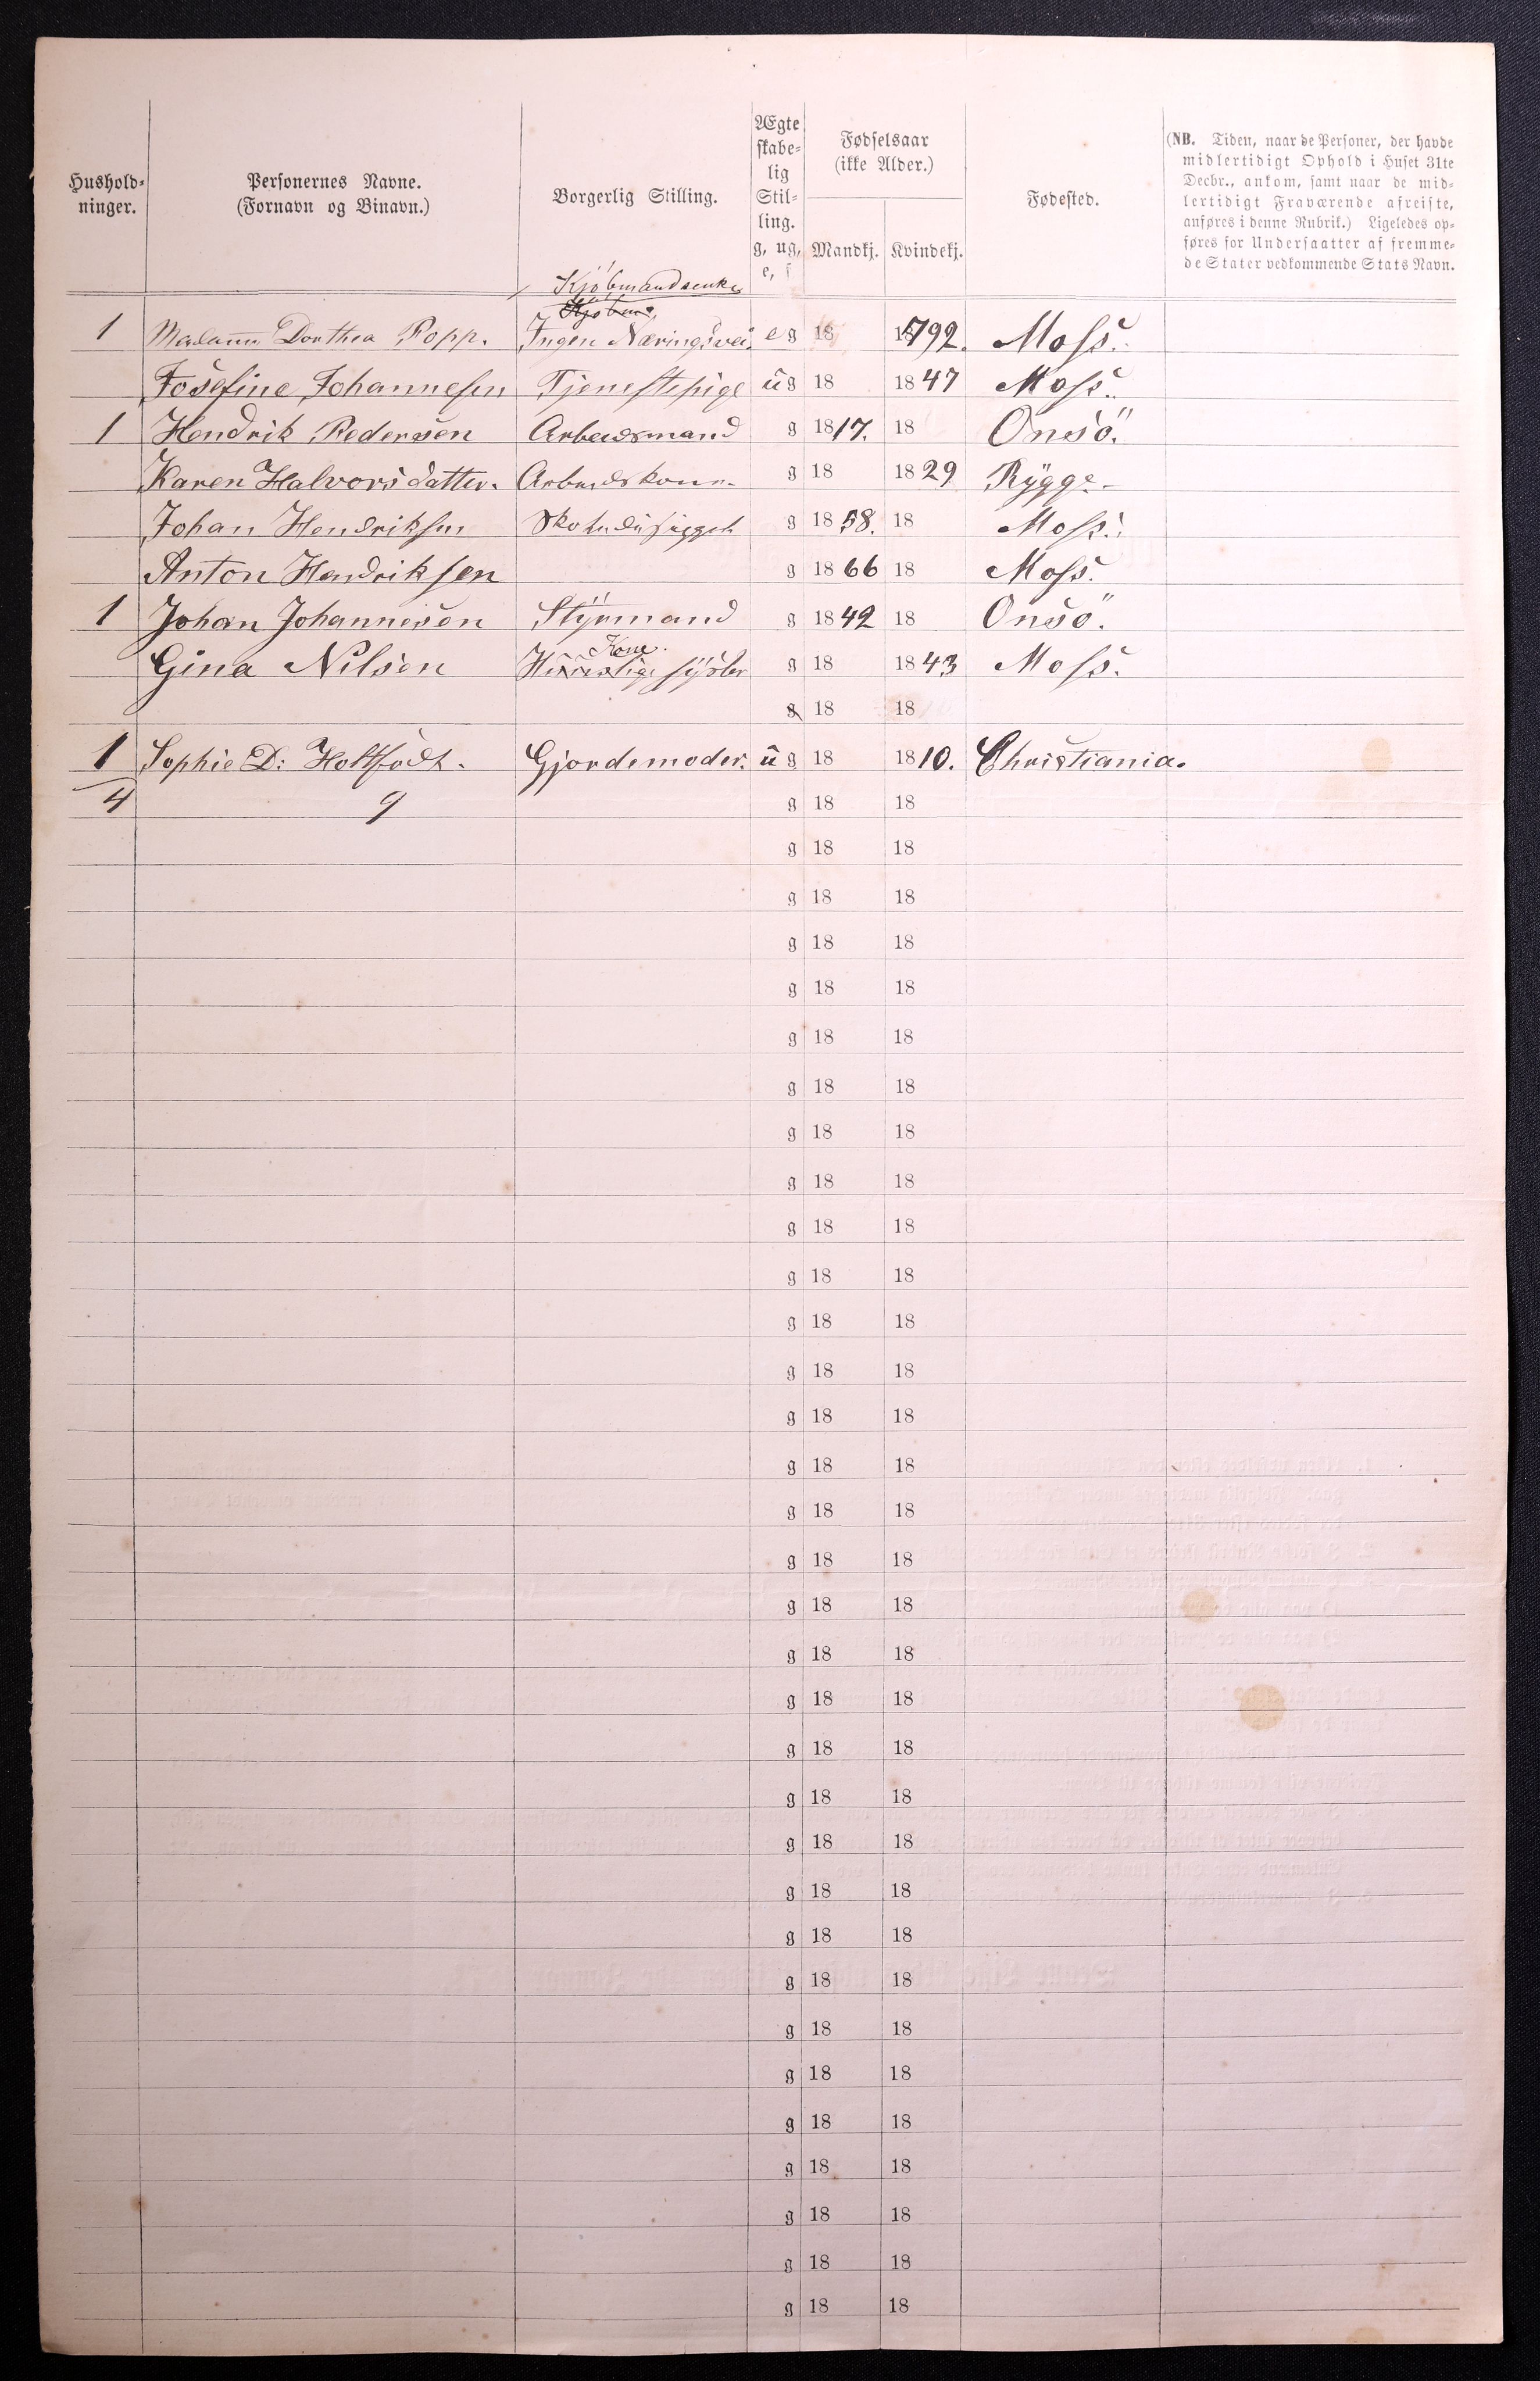 Hushold-
ninger.
Personernes Navne.
(Fornavn og Binavn.)
Borgerlig Stilling.
Ægte
skabe-
lig
Stil-
ling.
g, ug,
e, f
Fødselsaar
(ikke Alder.)
Mandkj. Kvindekj.
Fødested.
(NB. Tiden, naar de Personer, der havde
midlertidigt Ophold i Huset 31te
Decbr., ankom, samt naar de mid-
lertidigt Fraværende afreiste,
anføres i denne Rubrik.) Ligeledes op-
føres for Undersaatter af fremme-
de Stater vedkommende Stats Navn.
Kjöbmandsenke
1 Madam Dorthea Popp. Ingen Næringsvei. e g 18 1792. Moss.
Josefine Johannesen Tjenestepige u g 18 1847 Moss.
1 Hendrik Pedersen Arbeidsmand g 1817. 18 Onsö.
Karen Halvorsdatter. Arbeidskone. g 18 1829 Rygge
Johan Hendriksen g 1858. 18 Moss.
Anton Hendriksen g 1866 18 Moss.
1 Johan Johannesen Styrmand g 1842 18 Onsö.
Kone.
Gina Nilsen Huuslige sysler g 18 1843 Moss.
g 18 18
1 Sophie D: Holtfodt. Gjordemoder. u g 18 1810. Christiania.
4 9 g 18 18
g 18 18
g 18 18
g 18 18
g 18 18
g 18 18
g 18 18
g 18 18
g 18 18
g 18 18
g 18 18
g 18 18
g 18 18
g 18 18
g 18 18
g 18 18
g 18 18
g 18 18
g 18 18
g 18 18
g 18 18
g 18 18
g 18 18
g 18 18
g 18 18
g 18 18
g 18 18
g 18 18
g 18 18
g 18 18
g 18 18
g 18 18
g 18 18